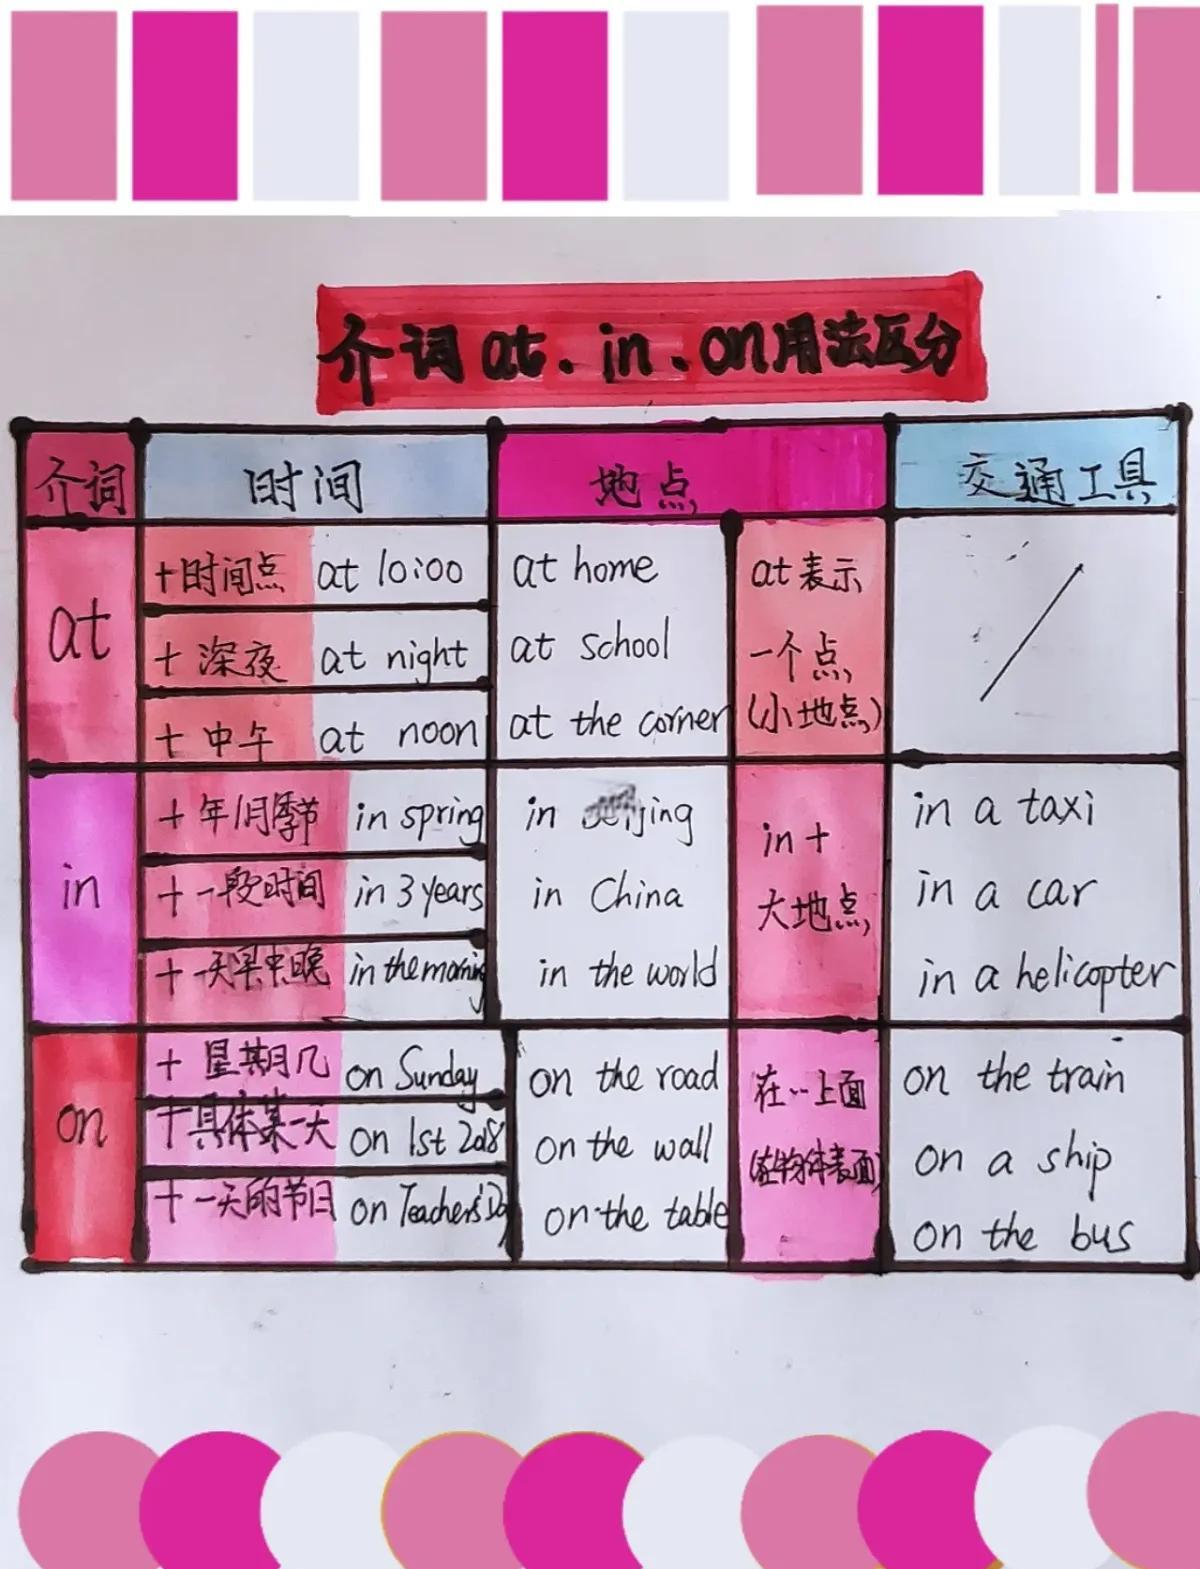 介词at、in、on用法区分
介词 时间 地点 交通工具
at
+时间点 at 10:00
+深夜 at night
+中午 at noon
at home
at school
at the corner
at表示
一个点
(小地点)
in
+年/月季节 in spring
+一段时间 in 3 years
+一天早中晚 in the morning
in Beijing
in China
in the world
in+
大地点
in a taxi
in a car
in a helicopter
on
+星期几 on Sunday
+具体某一天 on 1st 2018
+一天的节日 on Teachers' Day
on the road
on the wall
on the table
在··上面
(在物体表面)
on the train
on a ship
on the bus